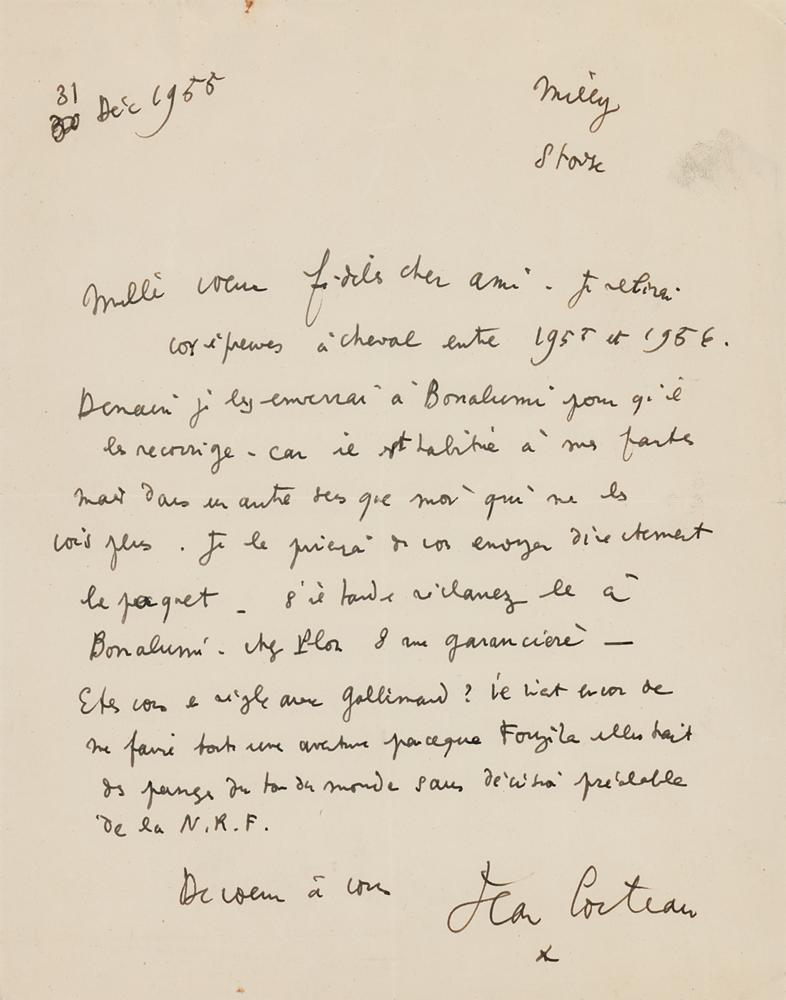 31
Déc 1955
Milly
S et Oise
Mille voeux fidèles cher ami. Je relirai
vos épreuves à cheval entre 1955 et 1956.
Demain je les enverrai à Bonalumi pour qu'il
les recorrige - car il est habitué à mes fautes
mais dans un autre sens que moi qui ne les
vois plus. Je le prierai de vos envoyer directement
le paquet - s'il tarde réclamez le à
Bonalumi - chez Plon 8 rue garancière —
Etes vous en règle avec Gallimard ? Il vient encor de
me faire toute une aventure parceque illustrait
des passages du tour du monde sans décision préalable
de la N.R.F.
De coeur à vous
Jean Cocteau